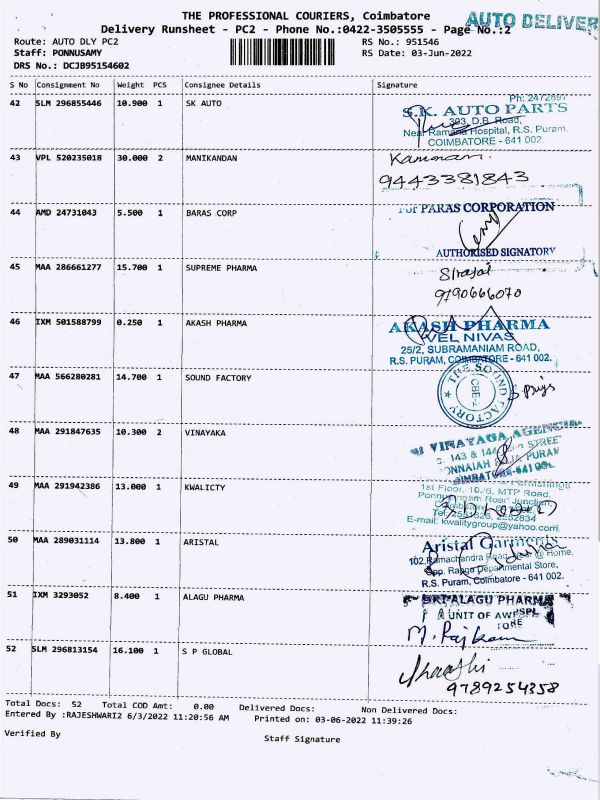 THE PROFESSIONAL COURIERS, Coimbatore
AUTO DELIVER
Delivery Runsheet - PC2 - Phone No.:0422-3505555 - Page No.:2
Route: AUTO DLY PC2
RS No.: 951546
Staff: PONNUSAMY
RS Date: 03-Jun-2022
DRS No.: DCJB95154602
S No Consignment No Weight PCS Consignee Details Signature
42 SLM 296855446 10.900 1 SK AUTO
Ph: 2472697
S.K. AUTO PARTS
393, D.B. Road,
Near Ramana Hospital, R.S. Puram,
COIMBATORE - 641 002.
43 VPL 520235018 30.000 2 MANIKANDAN
9443381843
44 AMD 24731043 5.500 1 BARAS CORP
For PARAS CORPORATION
AUTHORISED SIGNATORY
45 MAA 286661277 15.700 1 SUPREME PHARMA
9190666070
46 IXM 501588799 0.250 1 AKASH PHARMA
AKASH PHARMA
VEL NIVAS
25/2, SUBRAMANIAM ROAD,
R.S. PURAM, COIMBATORE - 641 002.
47 MAA 566280281 14.700 1 SOUND FACTORY
THE SOUND FACTORY
CBE-2
48 MAA 291847635 10.300 2 VINAYAKA
VINAYAGA AGENCIES
STREET
PURAM
49 MAA 291942386 13.000 1 KWALICTY
1st Floor, MTP Road,
E-mail: kwalitygroup@yahoo.com
50 MAA 289031114 13.800 1 ARISTAL
Aristal Garments
102, Ramachandra Road, Home,
Opp. Departmental Store,
R.S. Puram, Coimbatore - 641 002.
51 IXM 3293052 8.400 1 ALAGU PHARMA
ALAGU PHARMA
A UNIT OF
M. Rajkam
52 SLM 296813154 16.100 1 S P GLOBAL
9789254358
Total Docs: 52 Total COD Amt: 0.00 Delivered Docs: Non Delivered Docs:
Entered By :RAJESHWARI2 6/3/2022 11:20:56 AM Printed on: 03-06-2022 11:39:26
Verified By
Staff Signature